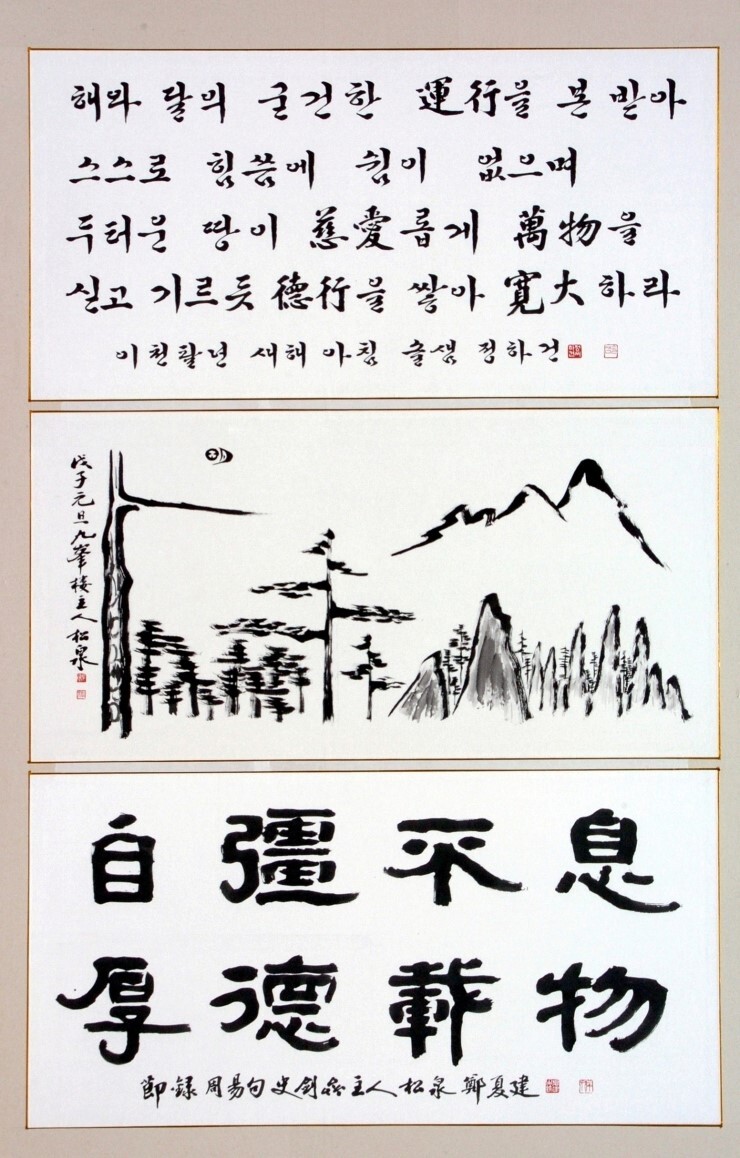 해와 달의 굳건한 運行을 본 받아
스스로 힘씀에 쉼이 없으며
두터운 땅이 慈愛롭게 萬物을
싣고 기르듯 德行을 쌓아 寬大하라
이천팔년 새해 아침 솔샘 정하건
戊子元旦九峯楼主人松泉
自彊不息
厚德載物
節錄周易句 主人 松泉 鄭夏建